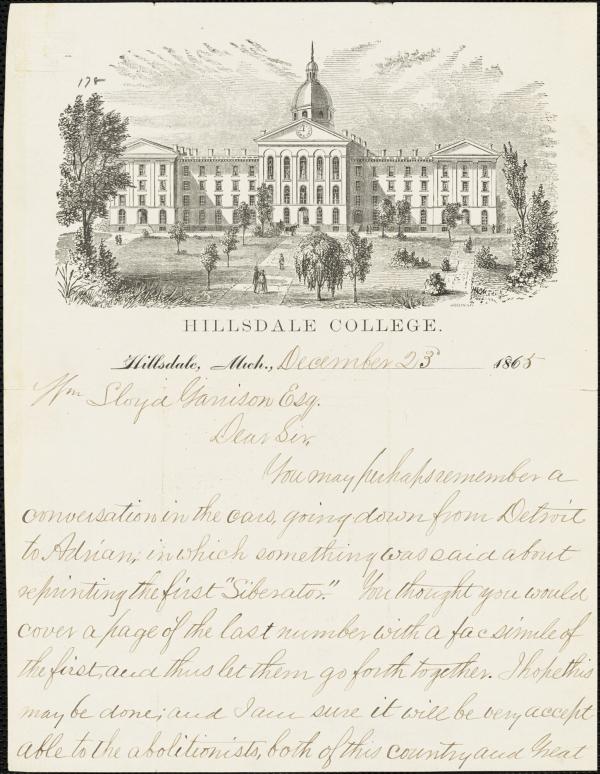 178
HILLSDALE COLLEGE.
Hillsdale, Mich., December 23 1865
Wm Lloyd Garrison Esq.
Dear Sir,
You may perhaps remember a
conversation in the cars, going down from Detroit
to Adrian, in which something was said about
reprinting the first "Liberator." You thought you would
cover a page of the last number with a fac simile of
the first, and thus let them go forth together. I hope this
may be done; and I am sure it will be very accept
able to the abolitionists, both of this country and Great